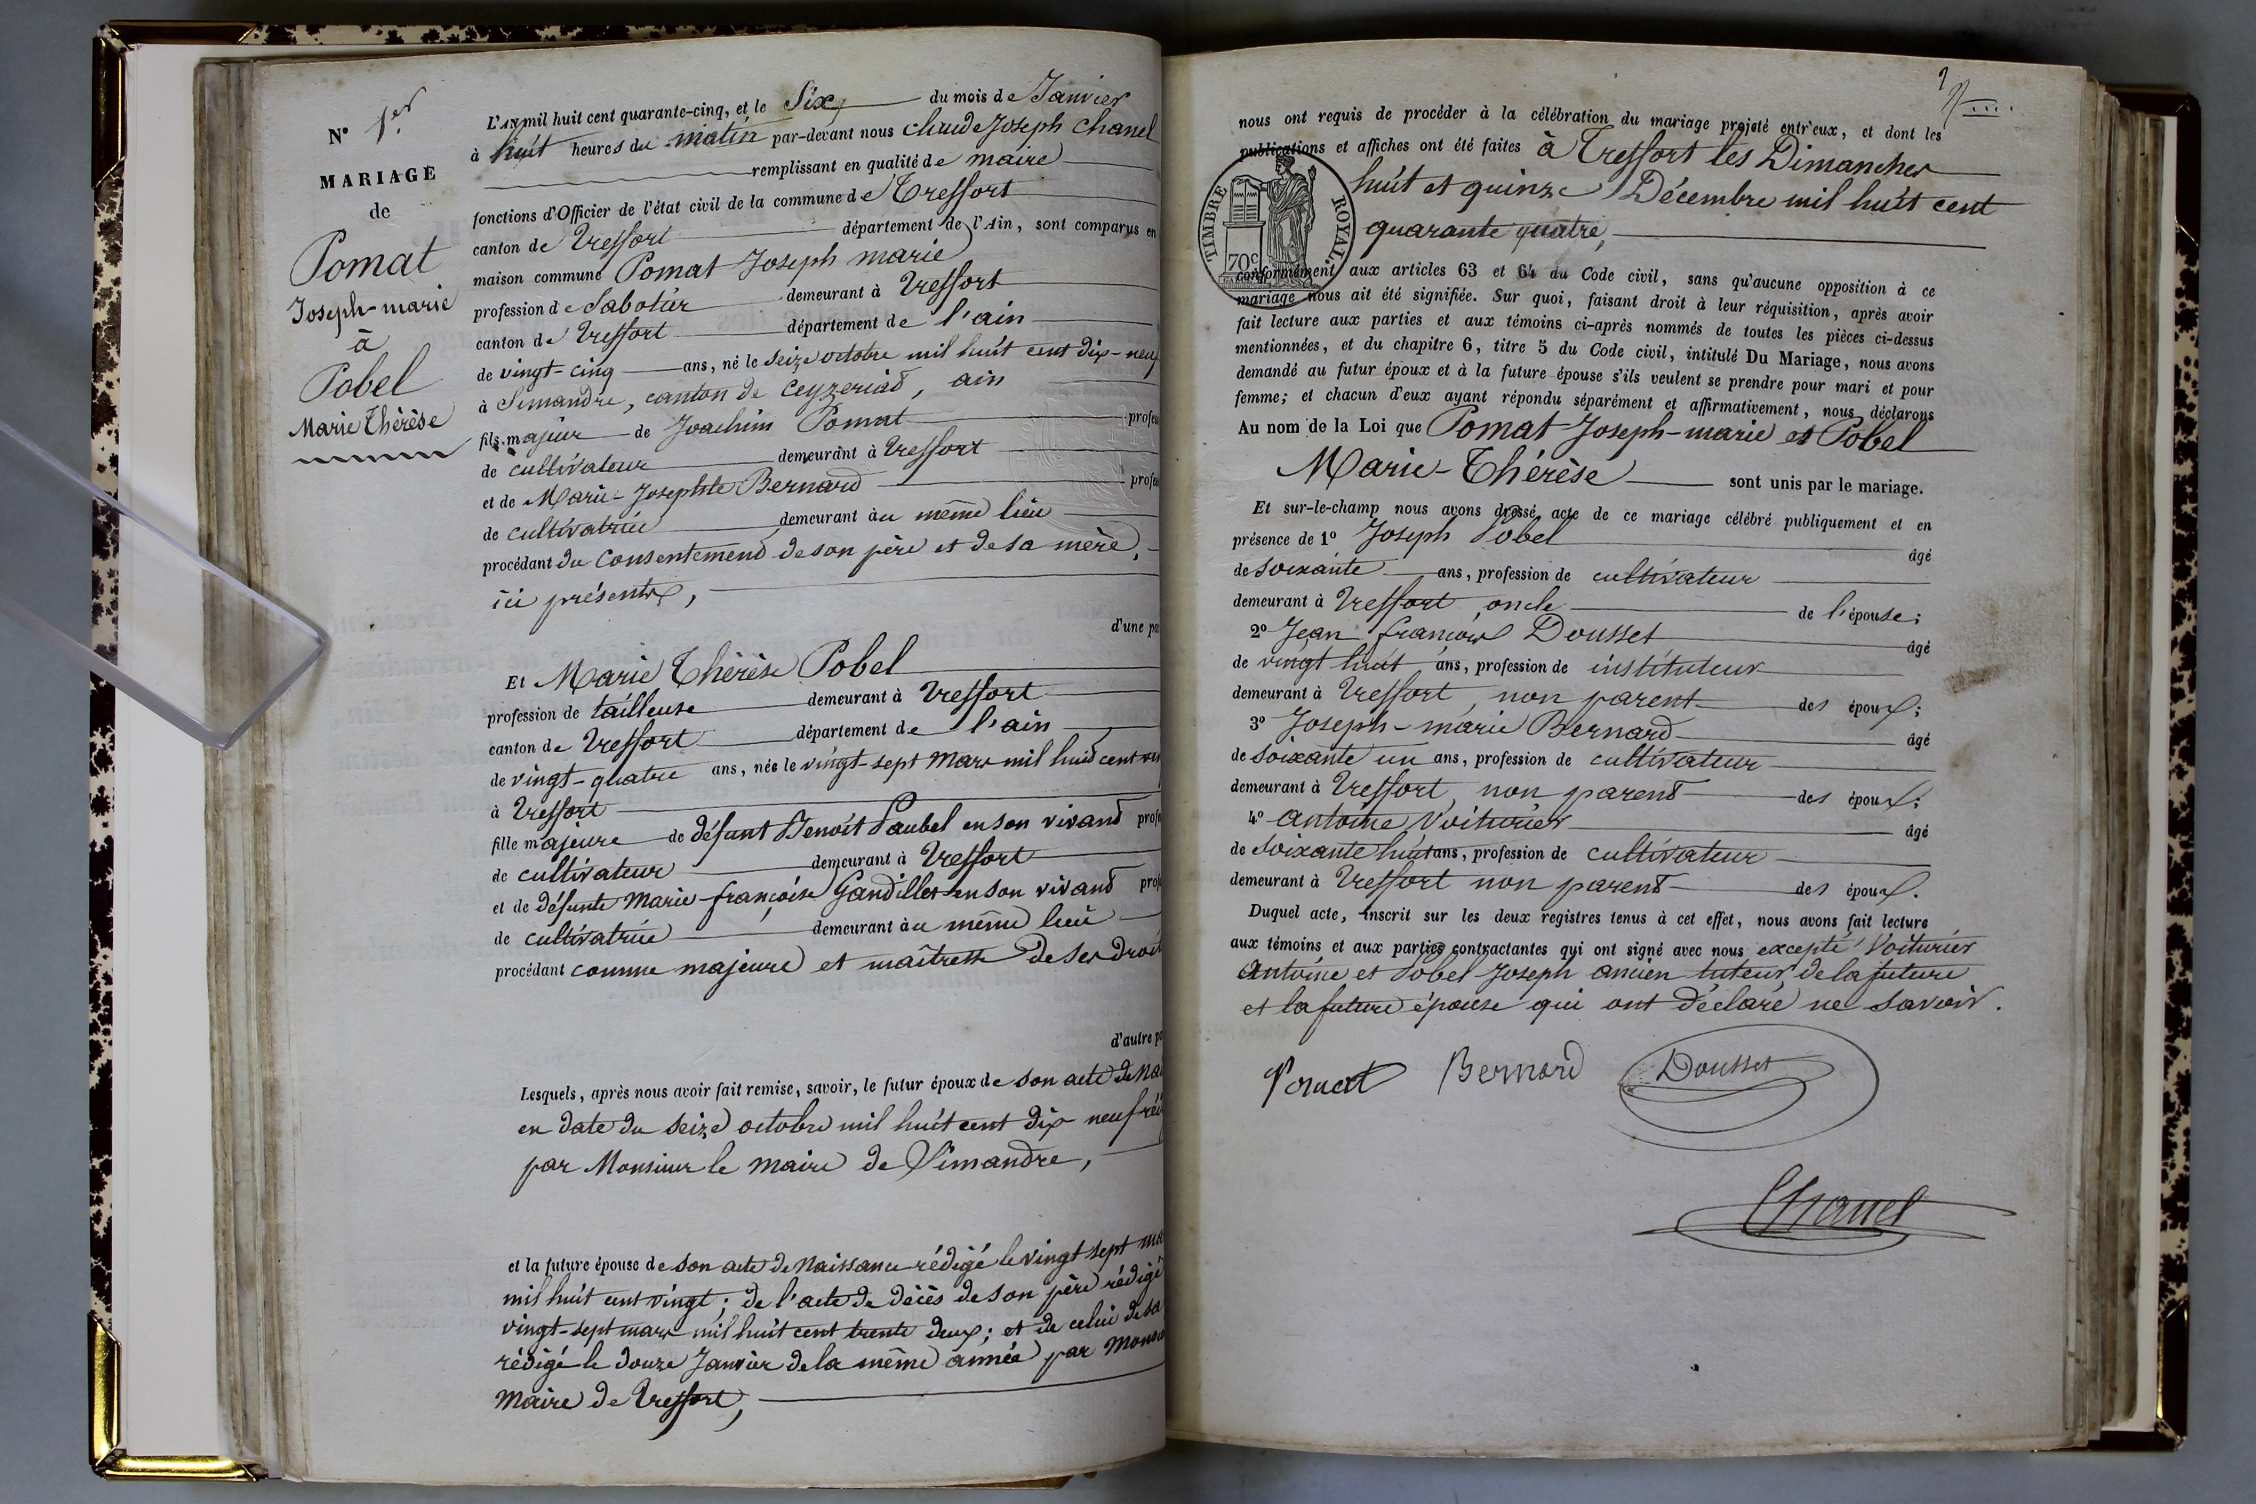 N° 1er
MARIAGE
de
Pomat
Joseph-marie
à
Pobel
Marie Thérèse
L'AN mil huit cent quarante-cinq, et le Six du mois de Janvier
à huit heures du matin par-devant nous Claude Joseph Chanel
remplissant en qualité de maire
fonctions d'Officier de l'état civil de la commune de Treffort
canton de Treffort département de l'Ain, sont comparus en
maison commune Pomat Joseph marie
profession de Sabotier demeurant à Treffort
canton de Treffort département de l'ain
de vingt-cinq ans, né le seize octobre mil huit cent dix-neuf
à Simandre, canton de Ceyzeriat, ain
fils majeur de Joachim Pomat profes
de cultivateur demeurant à Treffort
et de Marie-Josephte Bernard profes
de cultivatrice demeurant au même lieu
procédant du consentement de son père et de sa mère,
ici présents,
d'une pa
Et Marie Thérèse Pobel
profession de tailleuse demeurant à Treffort
canton de Treffort département de l'ain
de vingt-quatre ans, née le vingt-sept mars mil huit cent vin
à Treffort
fille majeure de défunt Benoît Paubel en son vivant profe
de cultivateur demeurant à Treffort
et de défunte Marie-françoise Gandillet en son vivant profe
de cultivatrice demeurant au même lieu
procédant comme majeure et maîtresse de ses droits
d'autre pa
Lesquels, après nous avoir fait remise, savoir, le futur époux de son acte de Nai
en date du seize octobre mil huit cent dix neuf rédi
par Monsieur le maire de Simandre,
et la future épouse de son acte de Naissance rédigé le vingt sept mar
mil huit cent vingt; de l'acte de décès de son père rédigé
vingt-sept mars mil huit cent trente deux; et de celui de sa
rédigé le douze Janvier de la même année par Monsieu
Maire de Treffort,
2
nous ont requis de procéder à la célébration du mariage projeté entr'eux, et dont les
publications et affiches ont été faites à Treffort les Dimanches
huit et quinze Décembre mil huit cent
quarante quatre,
TIMBRE ROYAL
70c
conformément aux articles 63 et 64 du Code civil, sans qu'aucune opposition à ce
mariage nous ait été signifiée. Sur quoi, faisant droit à leur réquisition, après avoir
fait lecture aux parties et aux témoins ci-après nommés de toutes les pièces ci-dessus
mentionnées, et du chapitre 6, titre 5 du Code civil, intitulé Du Mariage, nous avons
demandé au futur époux et à la future épouse s'ils veulent se prendre pour mari et pour
femme; et chacun d'eux ayant répondu séparément et affirmativement, nous déclarons
Au nom de la Loi que Pomat Joseph-marie et Pobel
Marie-Thérèse sont unis par le mariage.
Et sur-le-champ nous avons dressé acte de ce mariage célébré publiquement et en
présence de 1° Joseph Pobel âgé
de soixante ans, profession de cultivateur
demeurant à Treffort oncle de l'épouse;
2° Jean françois Dousset âgé
de vingt huit ans, profession de instituteur
demeurant à Treffort, non parent des époux;
3° Joseph-marie Bernard âgé
de soixante un ans, profession de cultivateur
demeurant à Treffort, non parent des époux;
4° antoine Voiturier âgé
de soixante huit ans, profession de cultivateur
demeurant à Treffort non parent des époux.
Duquel acte, inscrit sur les deux registres tenus à cet effet, nous avons fait lecture
aux témoins et aux parties contractantes qui ont signé avec nous excepté Voiturier
Antoine et Pobel Joseph ancien tuteur de la future
et la future épouse qui ont déclaré ne savoir.
Pomat Bernard Dousset
Chanel